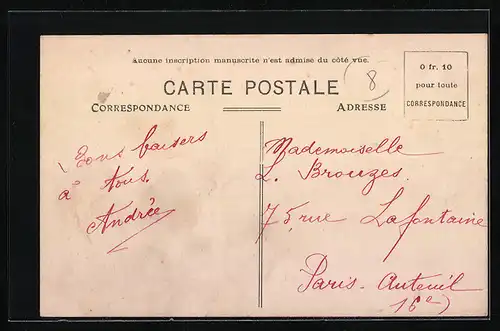 aucune inscription manuscrite n'est admise du côté vue.
CARTE POSTALE
8
0 fr. 10
pour toute
CORRESPONDANCE
CORRESPONDANCE
ADRESSE
baisers
à tous.
Andrée
Mademoiselle
L. Brouzes.
75, rue Lafontaine
Paris-Auteuil
16e)